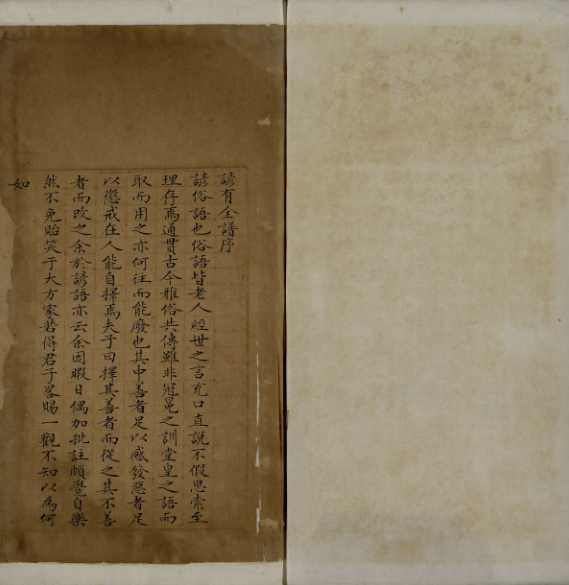 諺有全譜序
諺俗語也俗語皆老人經世之言冲口直說不假思索至
理存焉通貫古今雅俗共傳雖非冠冕之訓堂皇之語而
取而用之亦何往而能廢也其中善者足以感發惡者足
以懲戒在人能自擇焉夫子曰擇其善者而從之其不善
者而改之余於諺語亦云余因暇日偶加批註頗覺自樂
然不免貽笑于大方家若得君子客賜一觀不知以為何
如